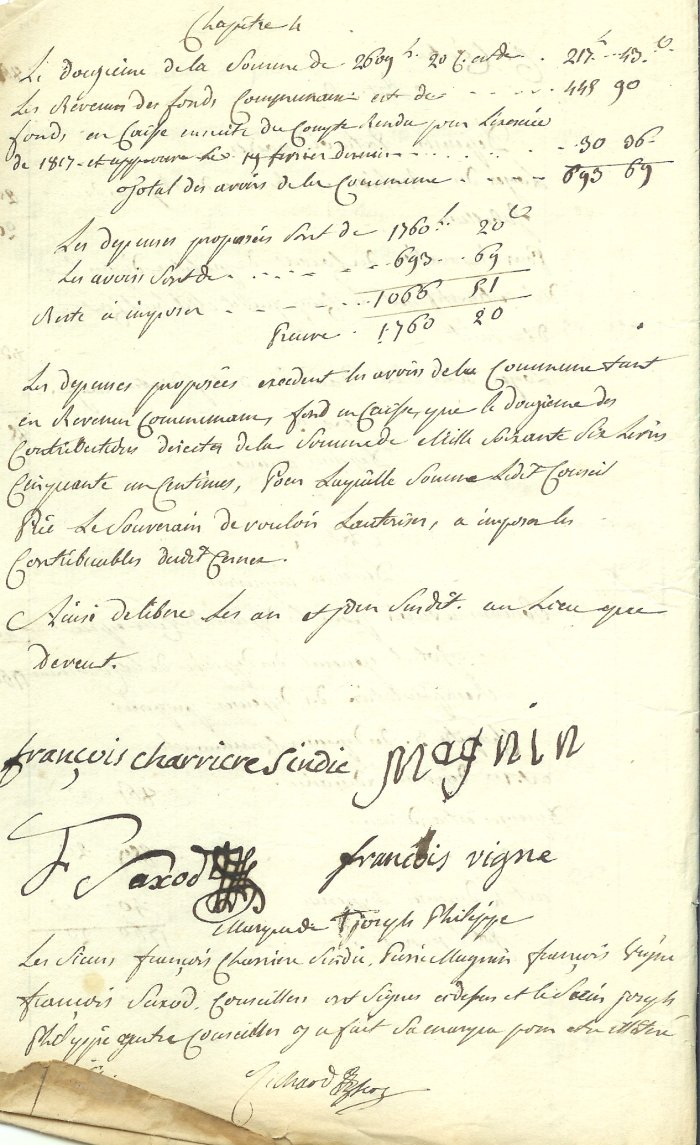 Chapitre 4
Le douzieme de la Somme de 2609 L. 20 C. est de . 217 L. 43 C.
Les Revenus des fonds Communaux est de . . . . . 448 90
fonds en Caisse ensuite du Compte Rendu pour l'exercice
de 1817 et approuvé le 14 fevrier dernier . . . . . 30 36
Total des avoirs de la Commune . . . 693 69
Les depenses proposées sont de 1760 L. 20 C.
Les avoirs sont de . . . . . . 693 . 69
Reste à imposer . . . . . . 1066 51
Preuve . 1760 20
Les depenses proposées excedent les avoirs de la Commune tant
en Revenus Communaux, fond en Caisse, que le douzieme des
Contributions directes de la Somme de Mille Soixante Six Livres
Cinquante un Centimes, Pour Laquelle Somme Ledit Conseil
Prie Le Souverain de vouloir L'autoriser, a imposer les
Contribuables dudit Cernex.
Ainsi deliberé Les an et jour Susdit. au Lieu que
devent.
françois charriere Sindic Magnin
F Saxod françois vigne
Marque de Joseph Philippe
Les Sieurs françois Charriere Sindic, Pierre Magnin françois Vigne
françois Saxod, Conseillers ont Signés cy dessus et le Sieur joseph
Philippe autre Conseiller y a fait Sa marque pour etre illiteré